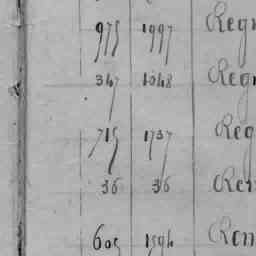 975 1997 Regn
347 1048 Reg
715 1737 Reg
36 36 Ren
605 1594 Ron